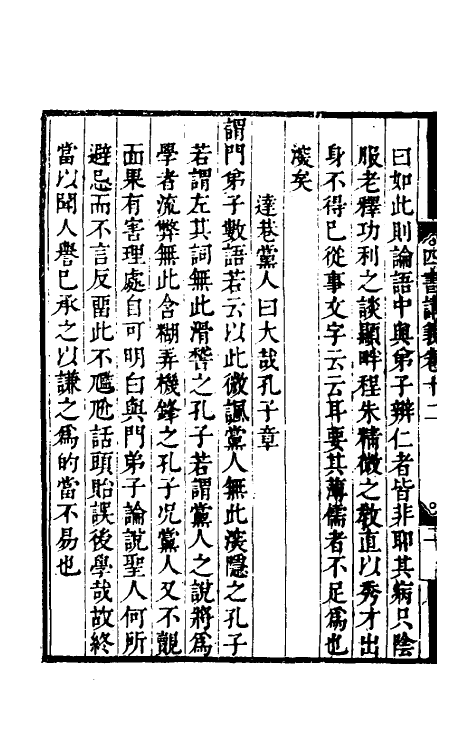 四書講義卷十二
十
曰如此則論語中與弟子辨仁者皆非耶其病只陰
服老釋功利之談顯畔程朱精微之教直以秀才出
身不得已從事文字云云耳要其薄儒者不足為也
滾矣
達巷黨人曰大哉孔子章
謂門弟子數語若云以此微諷黨人無此滾隱之孔子
若謂左其詞無此滑䅲之孔子若謂黨人之說將為
學者流弊無此含糊弄機鋒之孔子況黨人又不覿
面果有害理處自可明白與門弟子論說聖人何所
避忌而不言反畱此不尷尬話頭貽誤後學哉故終
當以聞人譽己承之以謙之為的當不易也